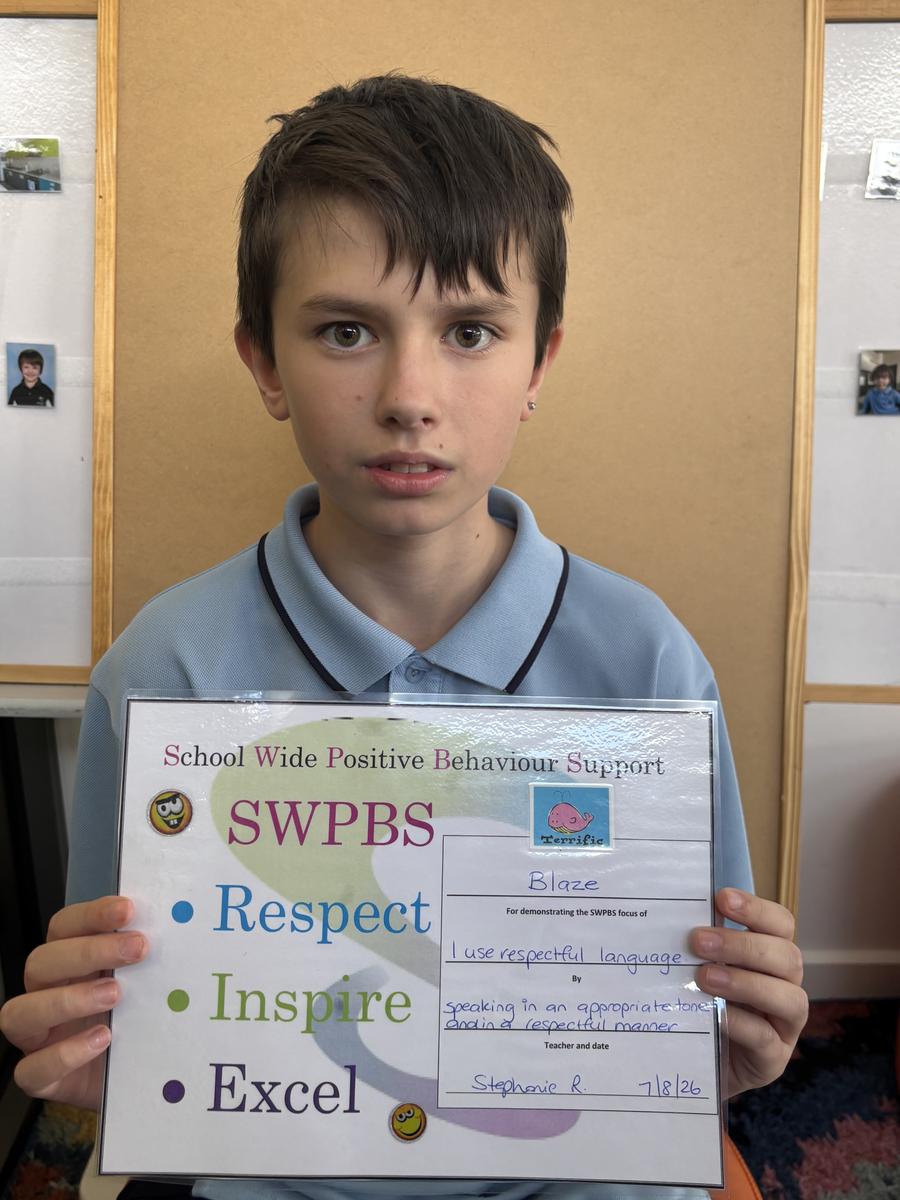 School Wide Positive Behaviour Support
SWPBS
Terrific
• Respect
• Inspire
• Excel
Blaze
For demonstrating the SWPBS focus of
I use respectful language
By
speaking in an appropriate tone
and in a respectful manner
Teacher and date
Stephanie R. 7/8/26